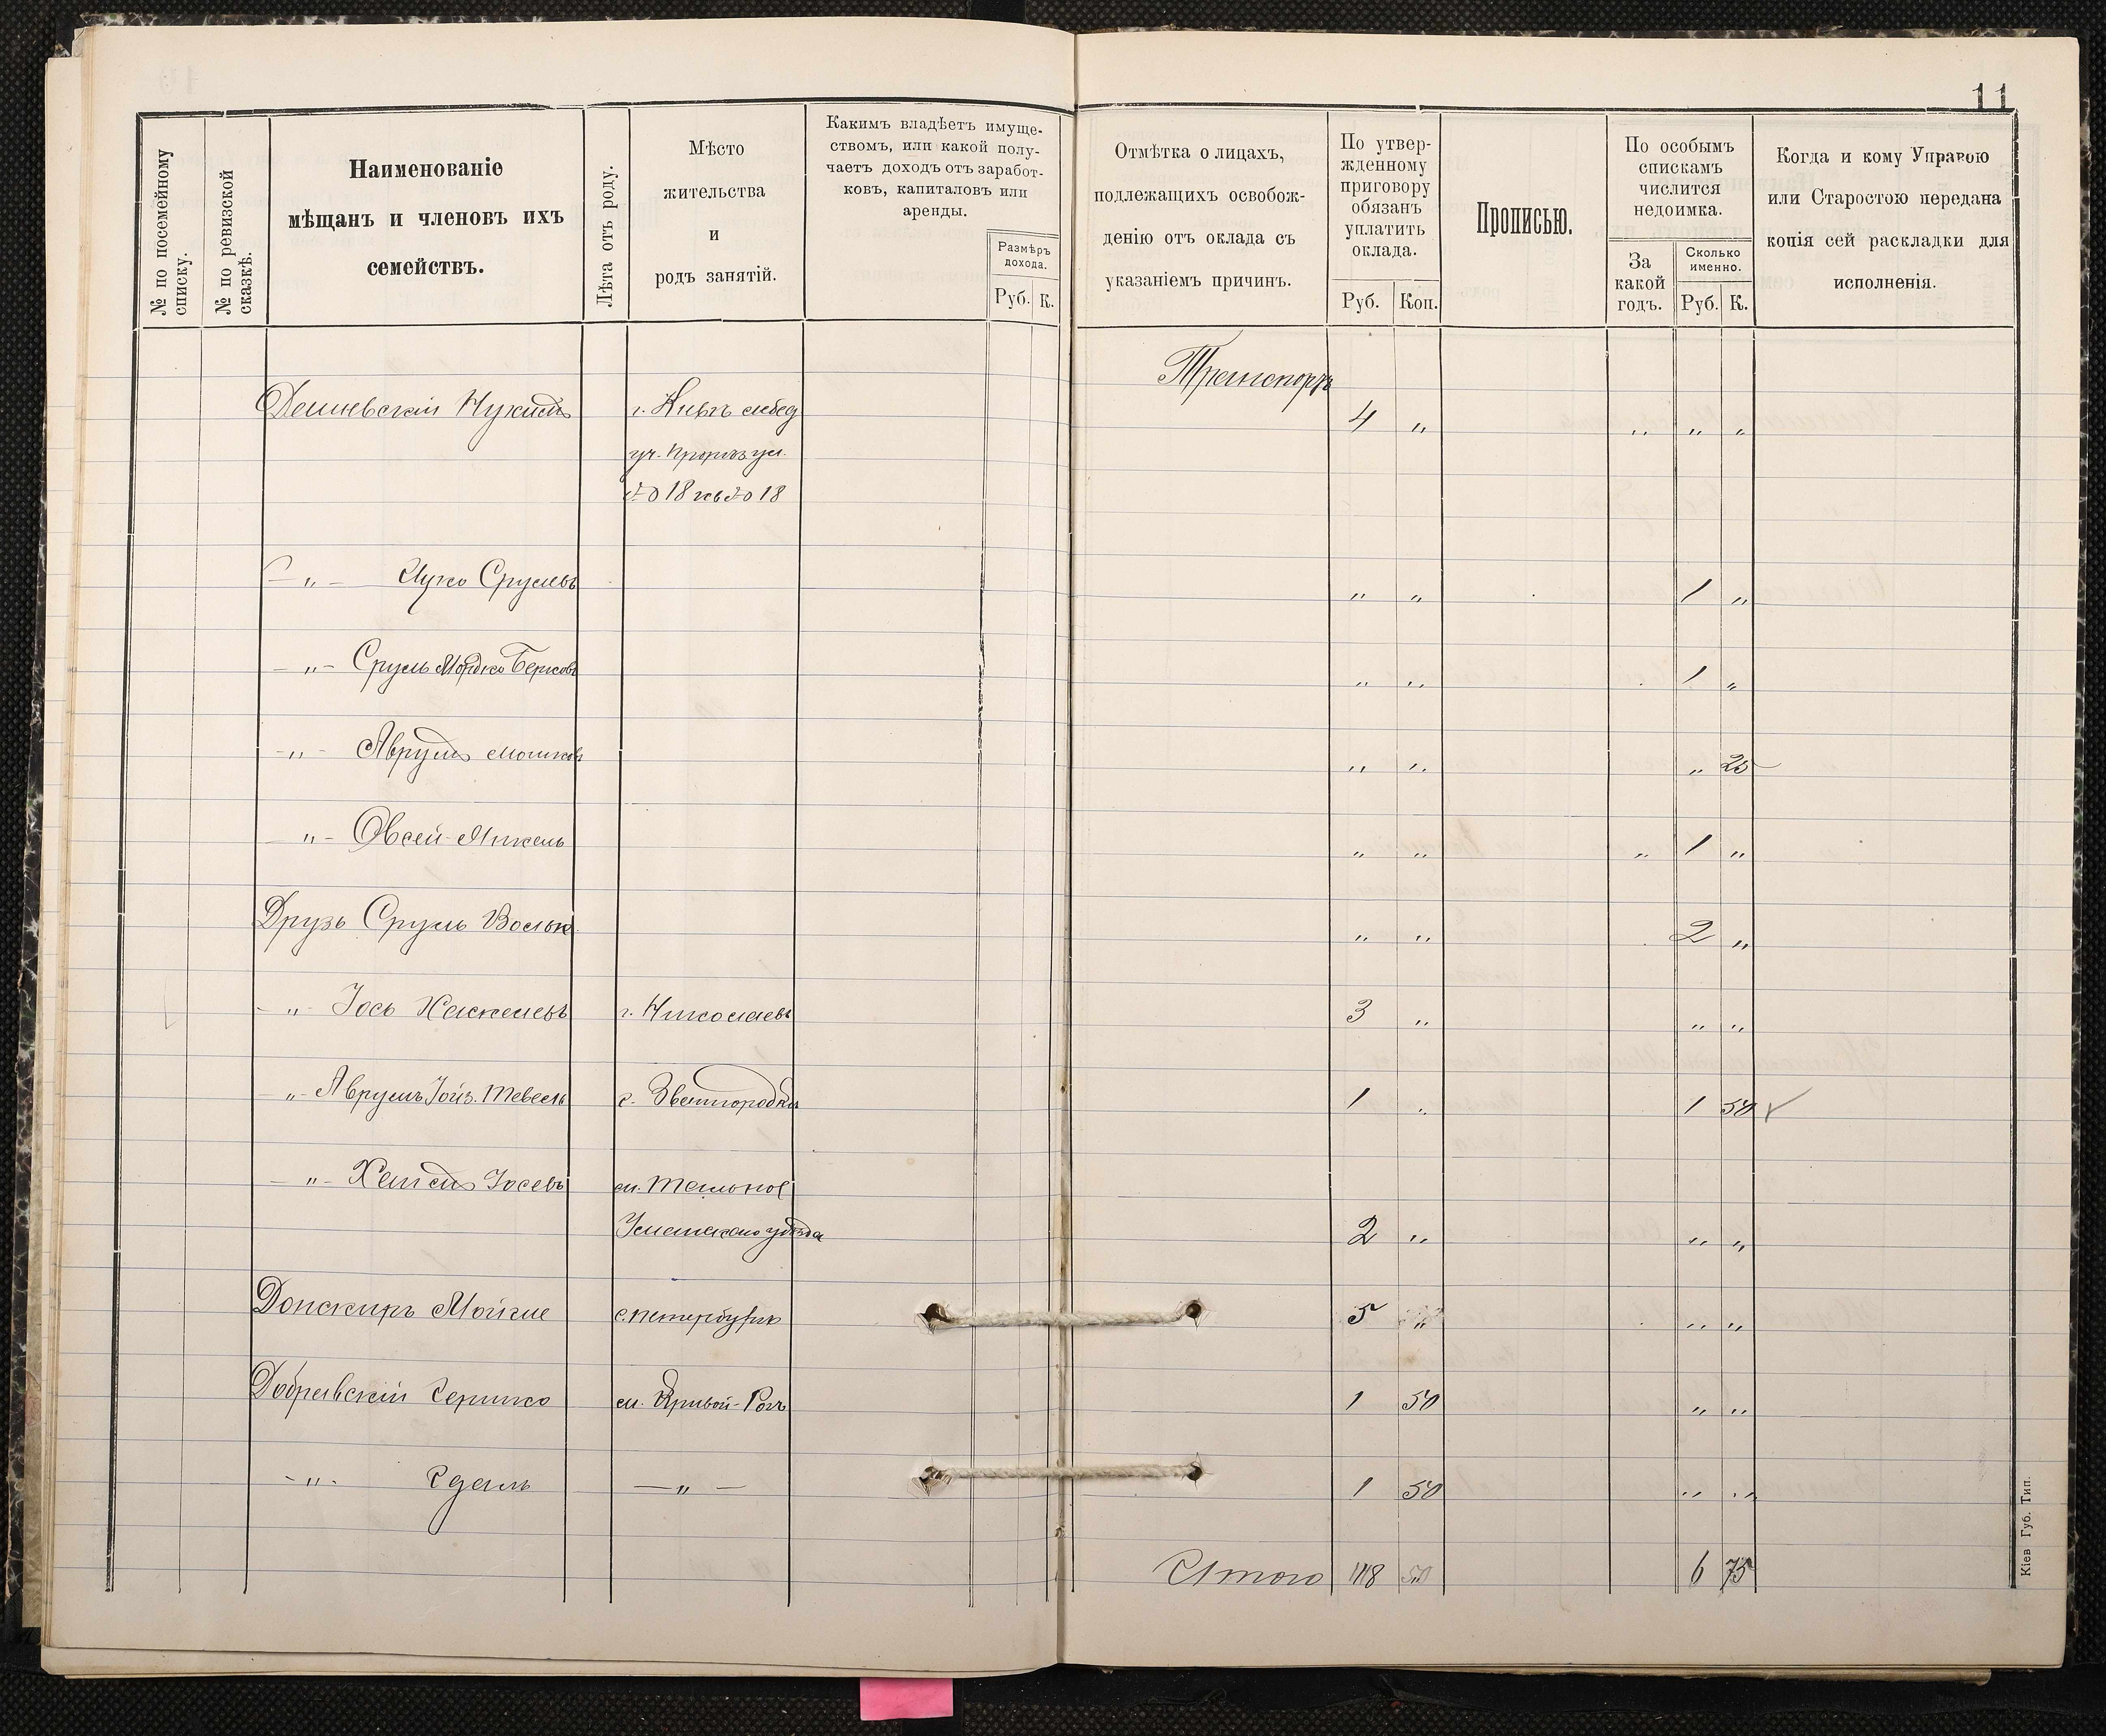 11
№ по посемейному списку.
№ по ревизской сказкѣ.
Наименованіе
мѣщанъ и членовъ ихъ
семействъ.
Лѣта отъ роду.
Мѣсто
жительства
и
родъ занятій.
Какимъ владѣетъ имуще-
ствомъ, или какой полу-
чаетъ доходъ отъ заработ-
ковъ, капиталовъ или
аренды.
Размѣръ
дохода.
Руб. К.
Отмѣтка о лицахъ,
подлежащихъ освобож-
денію отъ оклада съ
указаніемъ причинъ.
По утвер-
жденному
приговору
обязанъ
уплатить
оклада.
Руб. Коп.
Прописью.
По особымъ
спискамъ
числится
недоимка.
За
какой
годъ.
Сколько
именно.
Руб. К.
Когда и кому Управою
или Старостою передана
копія сей раскладки для
исполненія.
Транспортъ
г. Кіевъ лебед 4 „ „ „ „
уч.
№ 18 кв № 18
– „ – Ицко Срулевъ „ „ 1 „
– „ – Сруль Мордко Берковъ „ „ 1 „
– „ – Аврумъ Мошковъ „ „ „ 25
„ – Овсей „ „ „ 1 „
Друзь Сруль Вольк. „ „ 2 „
– „ – Іось Хаскелевъ г. Николаевъ 3 „ „ „
– „ – Аврумъ Тевель г. Звенигородка 1 „ 1 50
– „ – Іосевъ м. Тальное
Уманскаго уѣзда 2 „ „ „
Донскиръ Мойше С.петербургъ 5 „ „ „
м. Кривой-Рогъ 1 50 „ „
– „ – – „ – 1 50 „ „
Итого 18 50 6 75
Кіев Губ. Тип.